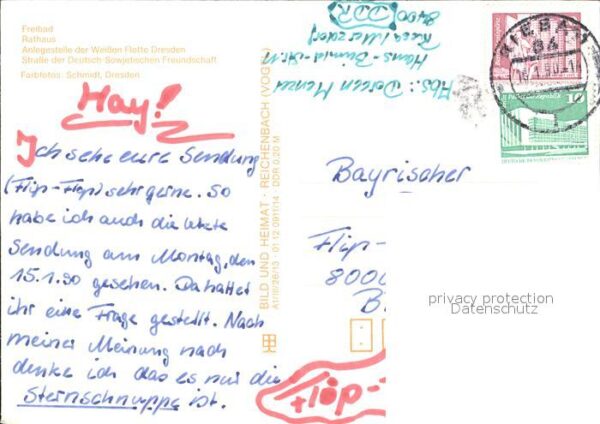 Freibad
Rathaus
Anlegestelle der Weißen Flotte Dresden
Straße der Deutsch-Sowjetischen Freundschaft
Farbfotos: Schmidt, Dresden
Hay!
Ich sehe eure Sendung
(Flip-Flop) sehr gerne. So
habe ich auch die letzte
Sendung am Montag, den
15.1.90 gesehen. Da hattet
ihr eine Frage gestellt. Nach
meiner Meinung nach
denke ich das es nur die
Sternschnuppe ist.
BILD UND HEIMAT · REICHENBACH (VOGTL)
A1/III/26/13 · 01 12 0911/14 DDR 0,20 M
Abs.: Doreen
Hans-
8400 DDR
10
Bayrischer
Flip-
8000
B
Flip-
privacy protection
Datenschutz